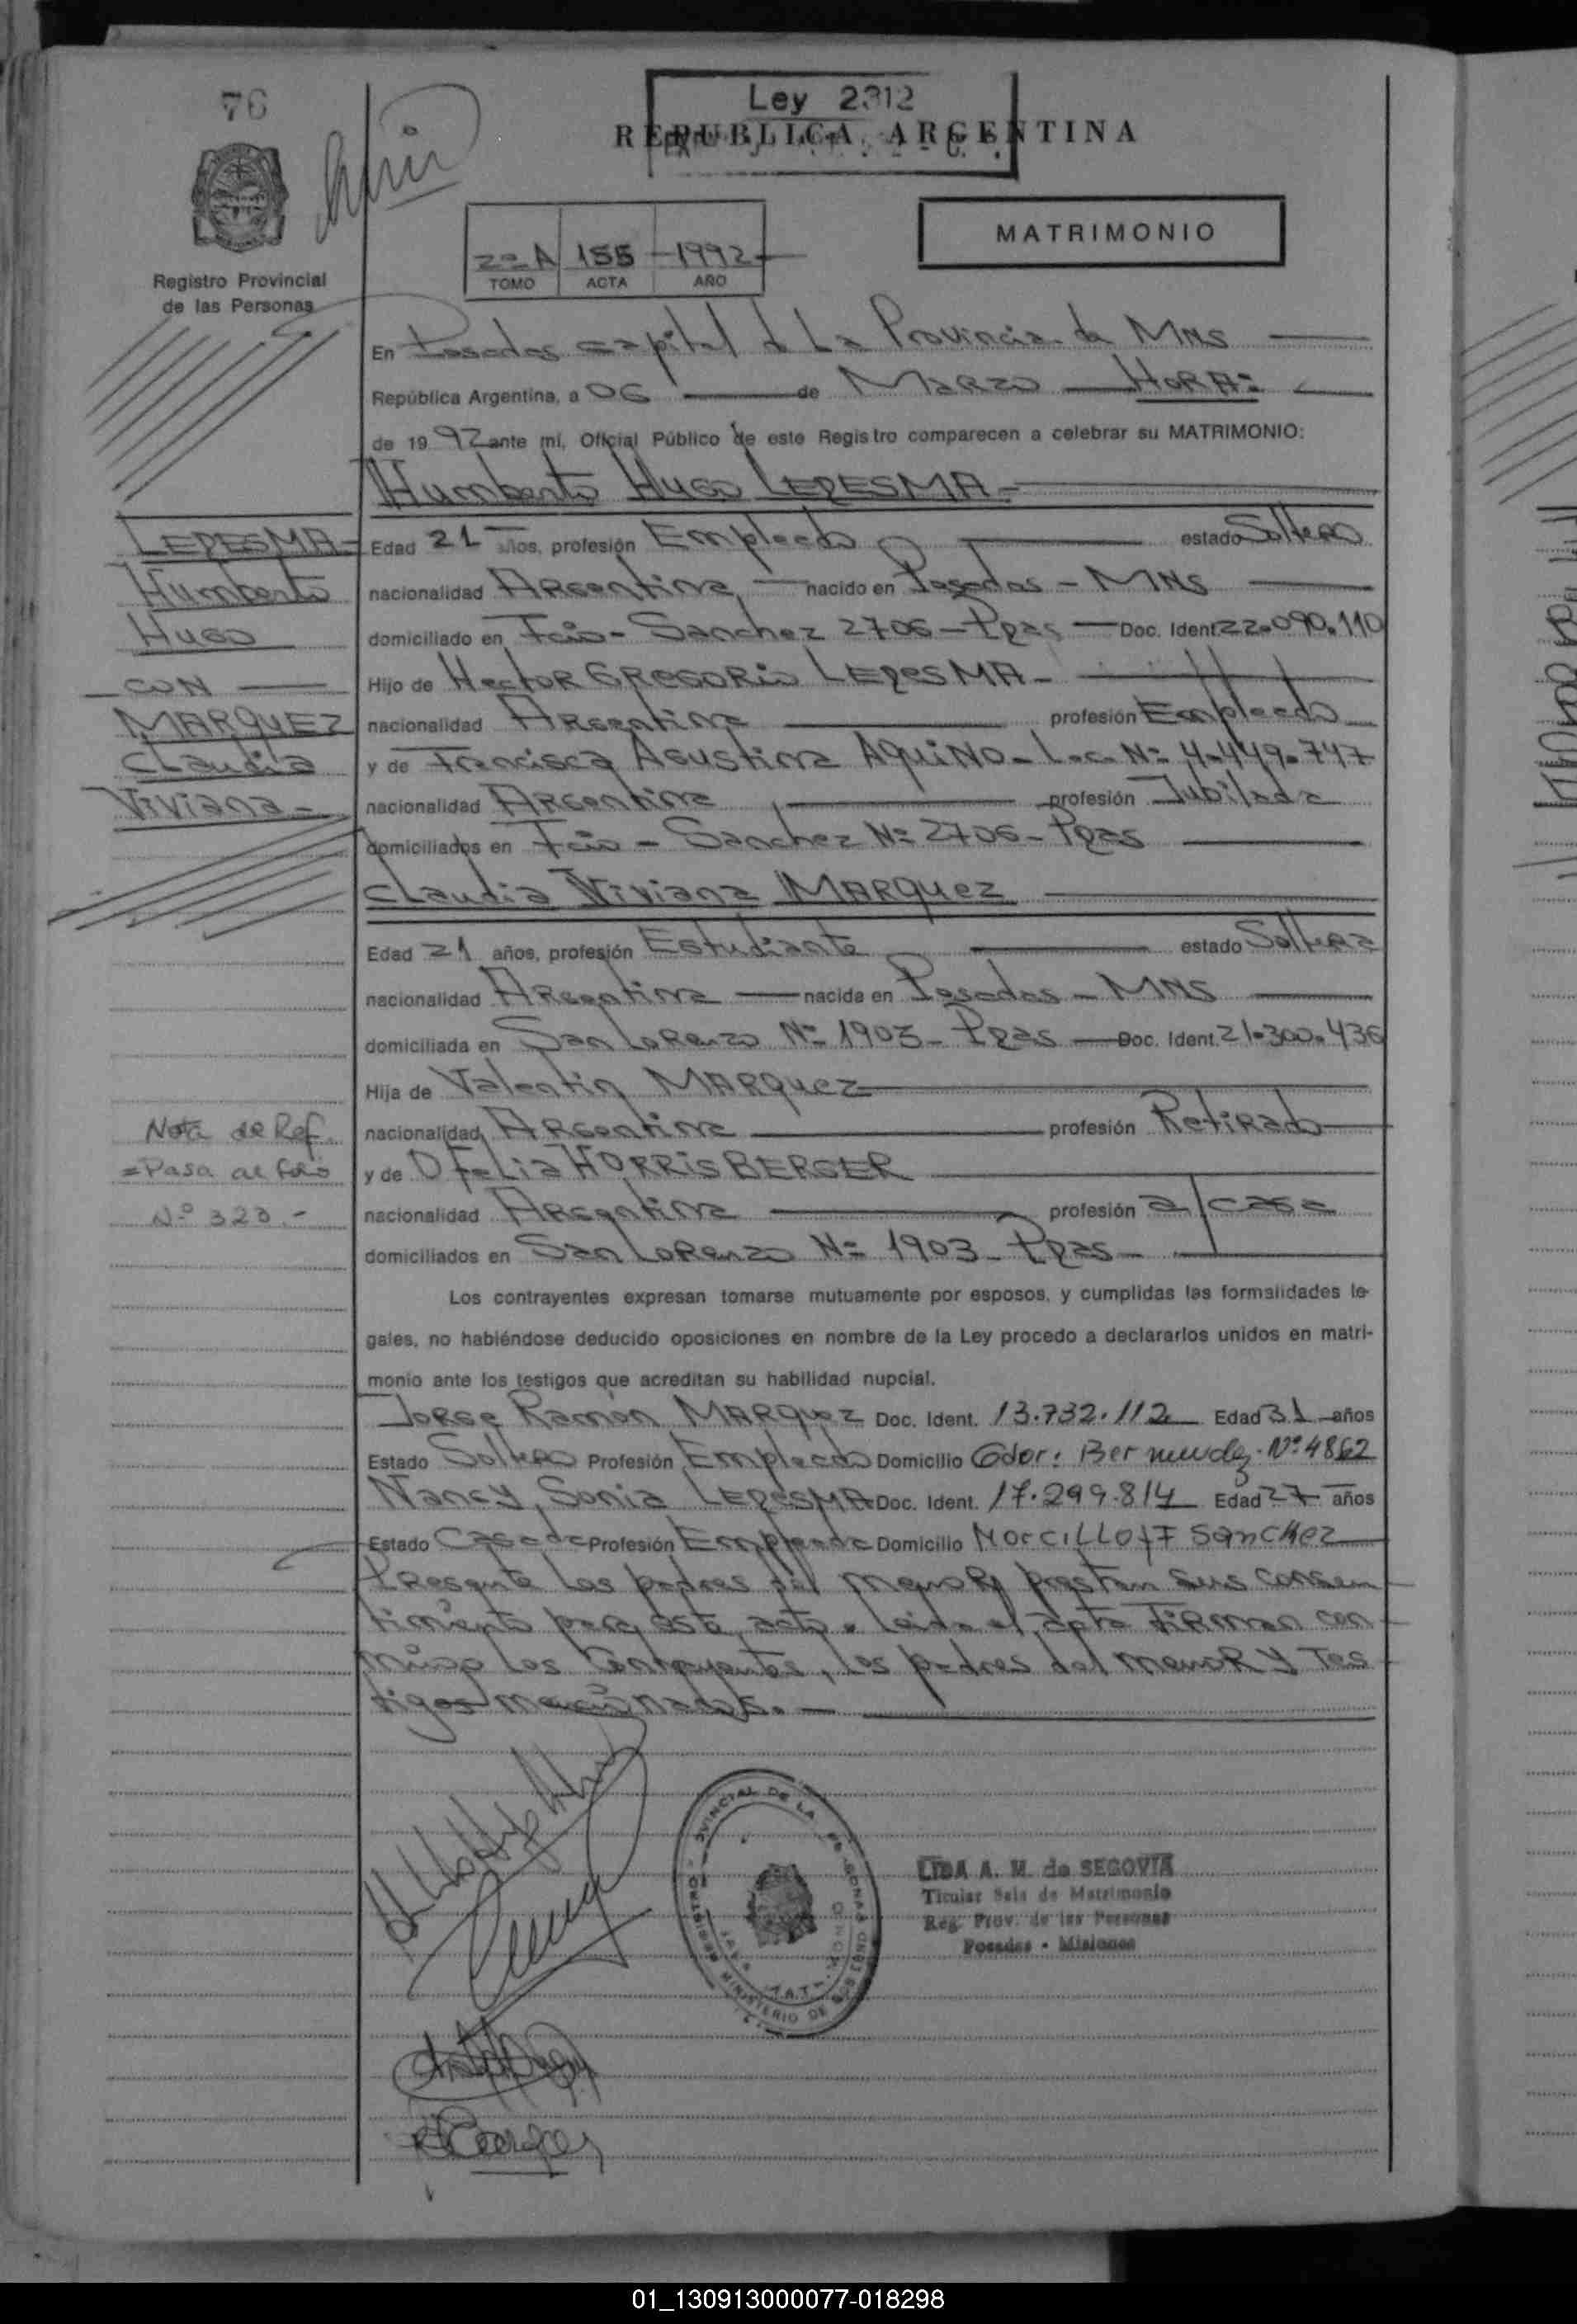 76
Ley 2312
REPUBLICA ARGENTINA
MATRIMONIO
2º A 155 1992
TOMO ACTA AÑO
Registro Provincial
de las Personas
En Posadas capital d La Provincia de MNS
República Argentina, a 06 de Marzo HORA:
de 1992 ante mí, Oficial Público de este Registro comparecen a celebrar su MATRIMONIO:
Humberto Hugo LEDESMA
LEDESMA
Humberto
Hugo
CON
MARQUEZ
Claudia
Viviana
Edad 21 años, profesión Empleado estado Soltero
nacionalidad Argentina nacido en Posadas - MNS
domiciliado en Fcio- Sanchez 2706 - Pdas Doc. Ident 22.090.110
Hijo de Hector GREGORio LEDESMA
nacionalidad Argentina profesión Empleado
y de Francisca Agustina AQUiNO - L.c. Nº 4.449.747
nacionalidad Argentina profesión Jubilada
domiciliados en Fcio - Sanchez Nº 2706 - Pdas
Claudia Viviana MARQuez
Edad 21 años, profesión Estudiante estado Soltera
nacionalidad Argentina nacida en Posadas - MNS
domiciliada en San Lorenzo Nº 1903 - Pdas Doc. Ident. 21.300.436
Hija de Valentin MARQuez
nacionalidad Argentina profesión Retirado
y de OfeLia HORRiSBERGER
nacionalidad Argentina profesión a/casa
domiciliados en San Lorenzo Nº 1903 - Pdas
Nota de Ref.
=Pasa al folio
Nº 323.-
Los contrayentes expresan tomarse mutuamente por esposos, y cumplidas las formalidades le-
gales, no habiéndose deducido oposiciones en nombre de la Ley procedo a declararlos unidos en matri-
monio ante los testigos que acreditan su habilidad nupcial.
Jorge Ramón MARQuez Doc. Ident. 13.732.112 Edad 31 años
Estado Soltero Profesión Empleado Domicilio Gdor: Bermudez Nº 4862
Nancy Sonia LEDESMA Doc. Ident. 17.299.814 Edad 27 años
Estado Casada Profesión Empleada Domicilio MorciLLo y F Sanchez
Presente los padres del menor prestan sus consen
timiento para este acto. leida el acta Firman con
migo los contrayentes, los padres del menor y Tes
tigos mencionados.
LIDA A. M. de SEGOVIA
Titular Sala de Matrimonio
Reg. Prov. de las Personas
Posadas - Misiones
01_130913000077-018298